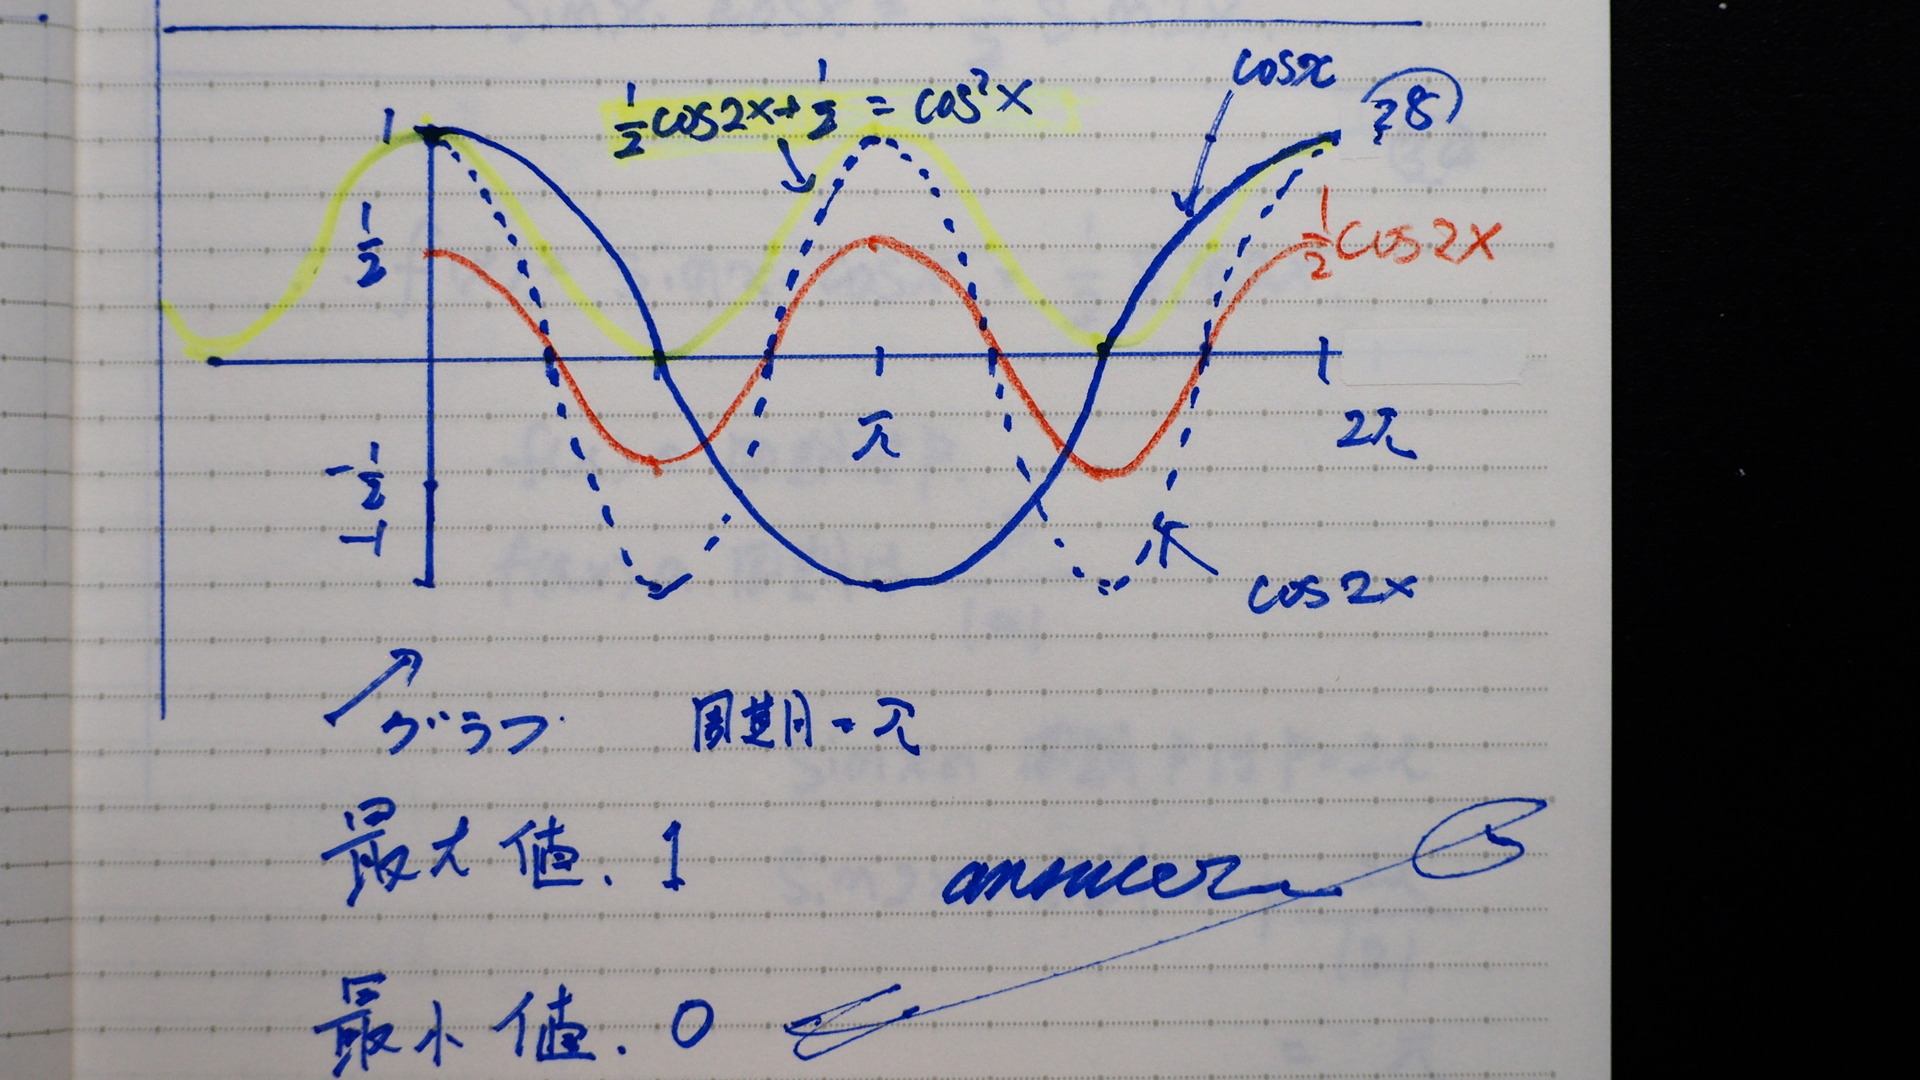 cosx
1/2 cos2x+1/2 = cos²x
1
1/2
1/2 cos2x
π
2π
-1/2
-1
cos2x
グラフ 周期=π
最大値. 1
answer
最小値. 0